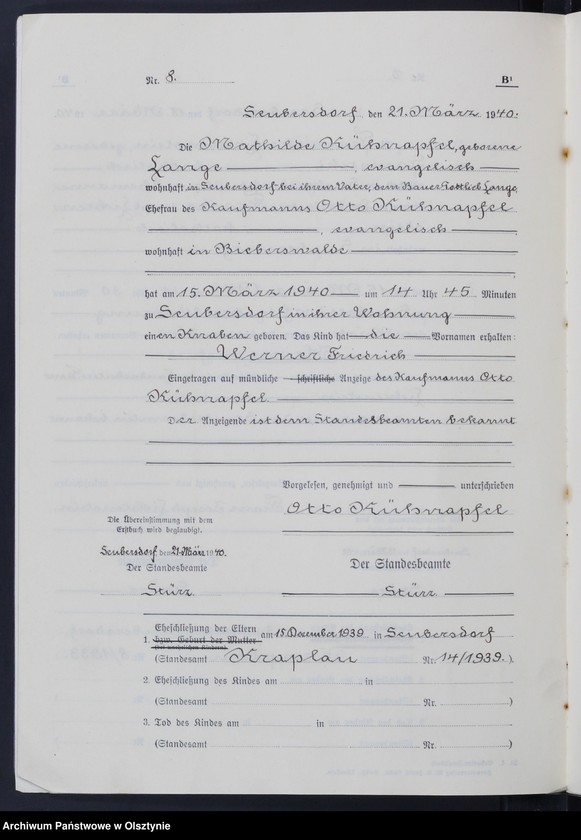 Nr. 8.
B¹
Seubersdorf den 21. März 1940.
Die Mathilde Kühnapfel, geborene
Lange, evangelisch
wohnhaft in Seubersdorf bei ihrem Vater, dem Bauer Gottlieb Lange
Ehefrau des Kaufmanns Otto Kühnapfel
, evangelisch
wohnhaft in Bieberswalde
hat am 15. März 1940 um 14 Uhr 45 Minuten
zu Seubersdorf in ihrer Wohnung
einen Knaben geboren. Das Kind hat die Vornamen erhalten:
Werner Friedrich
Eingetragen auf mündliche schriftliche Anzeige des Kaufmanns Otto
Kühnapfel.
Der Anzeigende ist dem Standesbeamten bekannt
Vorgelesen, genehmigt und unterschrieben
Otto Kühnapfel
Die Übereinstimmung mit dem
Erstbuch wird beglaubigt.
Seubersdorf den 21. März 1940.
Der Standesbeamte
Stürz
Der Standesbeamte
Stürz
1. Eheschließung der Eltern am 15. Dezember 1939 in Seubersdorf
bzw. Geburt der Mutter
(Standesamt Kraplau Nr. 14/1939.)
2. Eheschließung des Kindes am in
(Standesamt Nr. )
3. Tod des Kindes am in
(Standesamt Nr. )
Archiwum Państwowe w Olsztynie